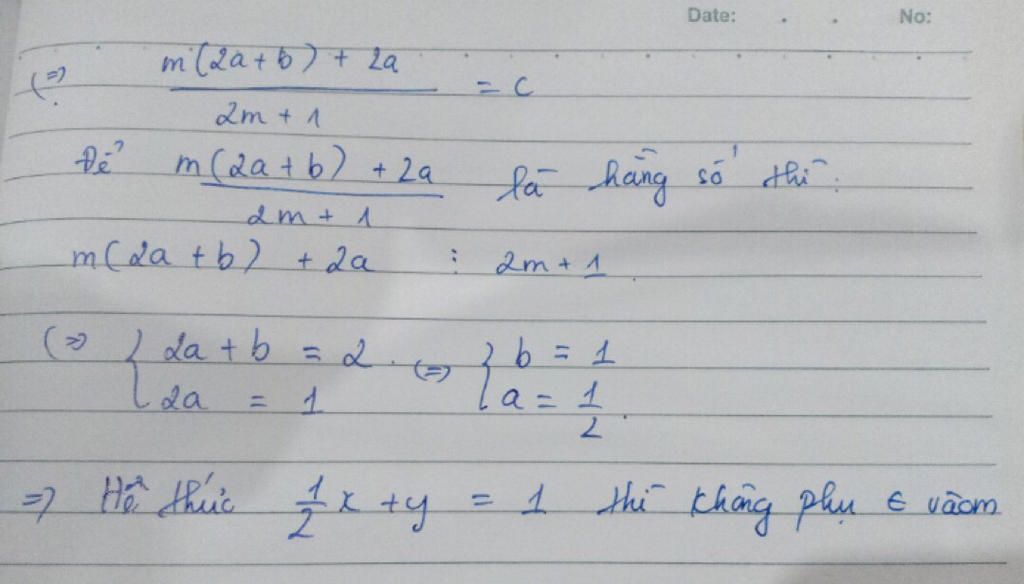 Date: . . No:
(=) m(2a+b) + 2a / 2m + 1 = c
Để m(2a+b) + 2a / 2m + 1 là hằng số thì:
m(2a+b) + 2a ⋮ 2m + 1
(=) { 2a + b = 2 (=) { b = 1
2a = 1 a = 1/2
=> Hệ thức 1/2 x + y = 1 thì không phụ ∈ vào m